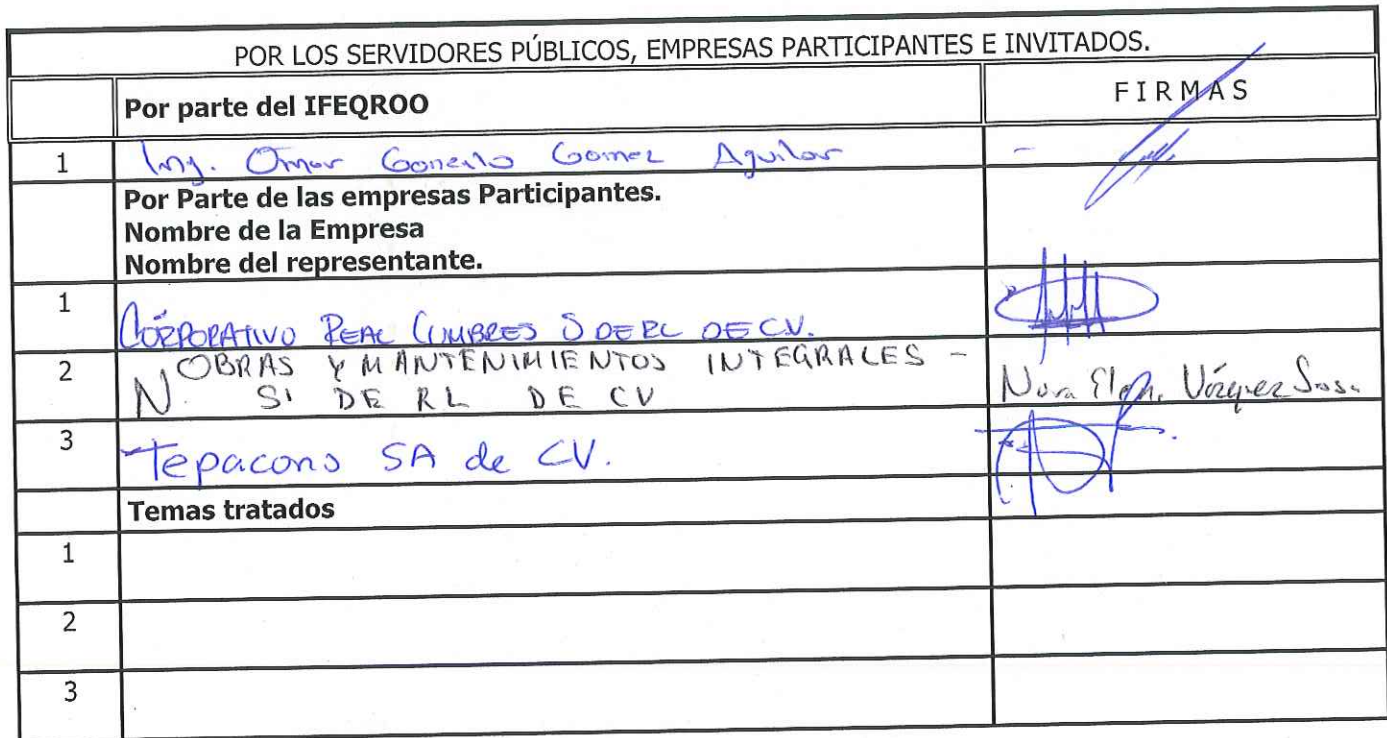 POR LOS SERVIDORES PÚBLICOS, EMPRESAS PARTICIPANTES E INVITADOS.
Por parte del IFEQROO FIRMAS
1 Ing. Omar Gonzalo Gomez Aguilar -
Por Parte de las empresas Participantes.
Nombre de la Empresa
Nombre del representante.
1 CORPORATIVO REAL CUMBRES S DE RL DE CV.
2 OBRAS Y MANTENIMIENTOS INTEGRALES -
N. SI DE RL DE CV Nora Vázquez Sosa
3 Tepacons SA de CV.
Temas tratados
1
2
3